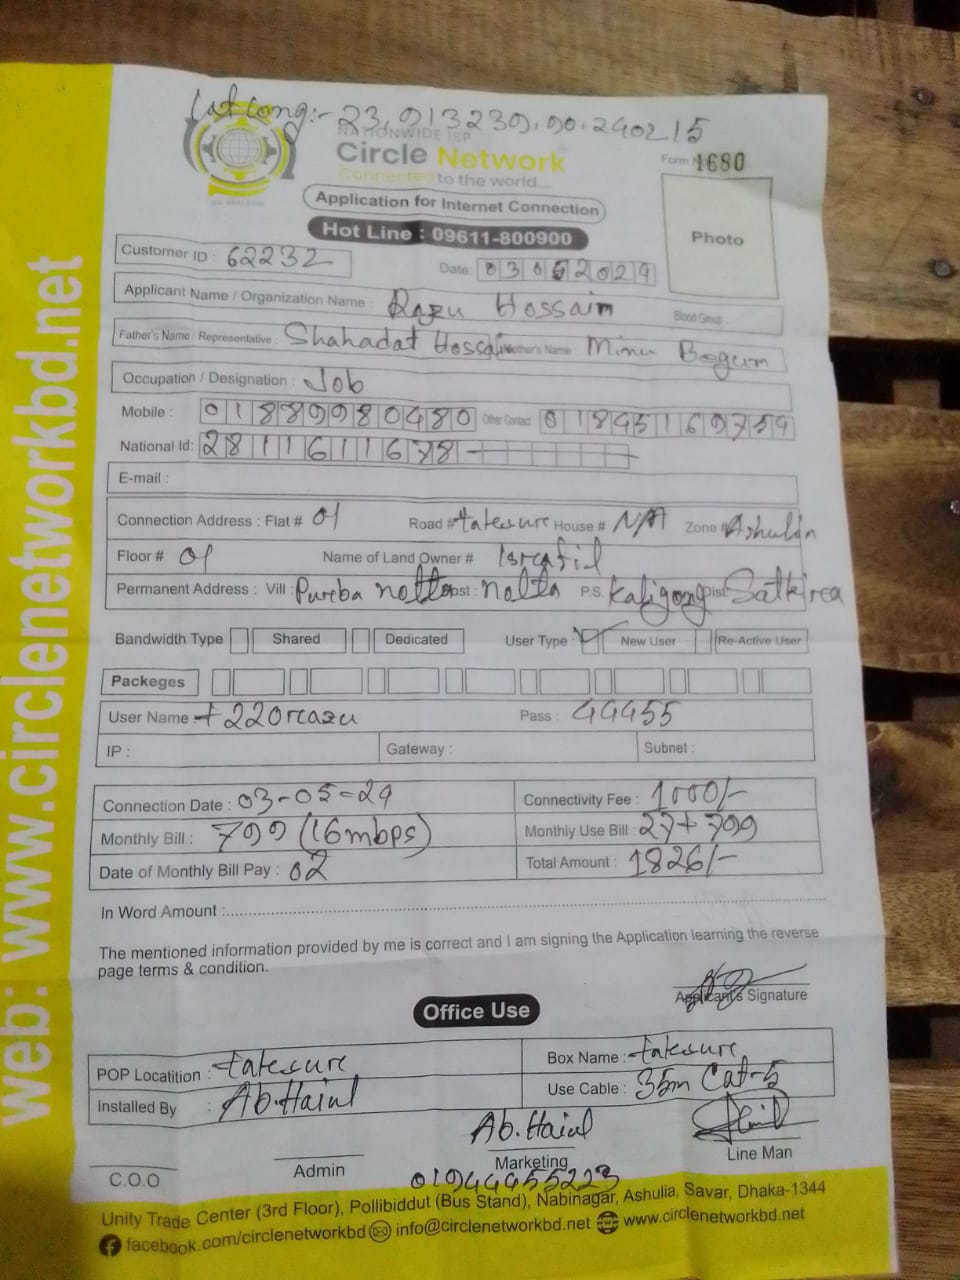 Lat Long:- 23.913239,90.240215
NATIONWIDE ISP
Circle Network
Connected to the world...
Form No 1680
Application for Internet Connection
Hot Line : 09611-800900
Photo
Customer ID : 62232
Date: 03052024
Applicant Name / Organization Name : Razu Hossain Blood Group
Father's Name / Representative : Shahadat Hossain Mother's Name Minu Begum
Occupation / Designation : Job
Mobile : 01889980480 Other Contact : 01845169759
National Id: 2811611678
E-mail :
Connection Address : Flat # 01 Road # tatesure House # N/A Zone # Ashulia
Floor # 01 Name of Land Owner # Israfil
Permanent Address : Vill : Pureba nolta Post : nolta P.S. Kaligong Dist Satkirea
Bandwidth Type Shared Dedicated User Type New User Re-Active User
Packeges
User Name t220razu Pass : 44455
IP : Gateway : Subnet :
Connection Date : 03-05-24 Connectivity Fee : 1000/-
Monthly Bill : 799 (16mbps) Monthly Use Bill : 27+799
Date of Monthly Bill Pay : 02 Total Amount : 1826/-
In Word Amount :
The mentioned information provided by me is correct and I am signing the Application learning the reverse
page terms & condition.
Applicant's Signature
Office Use
POP Locatition : tatesure Box Name : tatesure
Installed By : Ab.Haiul Use Cable : 35m Cat-5
Ab.Haiul
C.O.O Admin Marketing Line Man
01944455223
Unity Trade Center (3rd Floor), Pollibiddut (Bus Stand), Nabinagar, Ashulia, Savar, Dhaka-1344
facebook.com/circlenetworkbd info@circlenetworkbd.net www.circlenetworkbd.net
web: www.circlenetworkbd.net